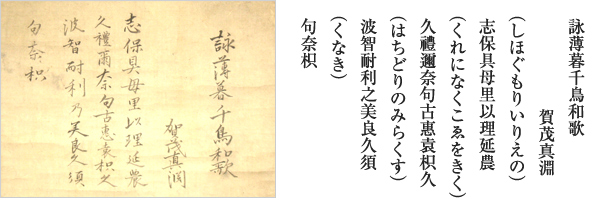 詠薄暮千鳥和歌
賀茂真淵
(しほぐもりいりえの)
志保具母里以理延農
(くれになくこゑをきく)
久禮邇奈句古惠袁枳久
(はちどりのみらくす)
波智耐利之美良久須
(くなき)
句奈枳
詠薄暮千鳥和歌
賀茂真渕
志保具母里以理延農
久禮爾奈句古恵袁枳久
波智耐利乃美良久須
句奈枳